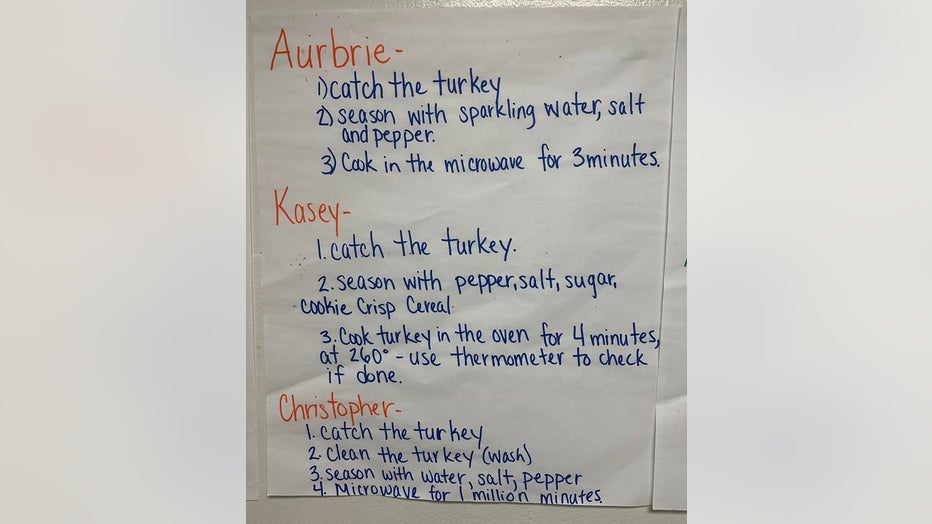 Aurbrie-
1) catch the turkey
2) season with sparkling water, salt
and pepper.
3) Cook in the microwave for 3 minutes.
Kasey-
1. catch the turkey.
2. season with pepper, salt, sugar,
cookie Crisp Cereal
3. Cook turkey in the oven for 4 minutes,
at 260° - use thermometer to check
if done.
Christopher-
1. catch the turkey
2. clean the turkey (wash)
3. season with water, salt, pepper
4. Microwave for 1 million minutes.